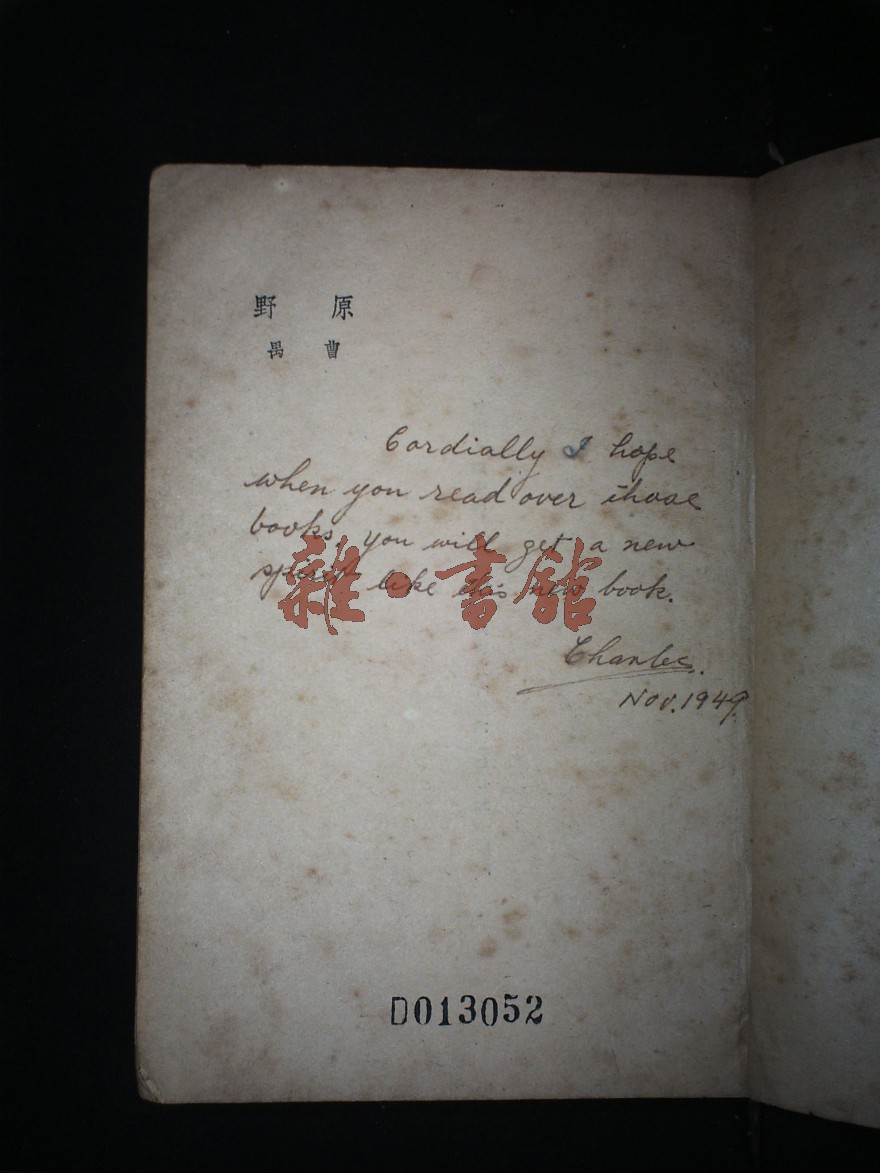 野原
禺曹
Cordially I hope
when you read over those
books, you will get a new
spirit like this new book.
Charles.
Nov. 1949.
雜·書館
D013052